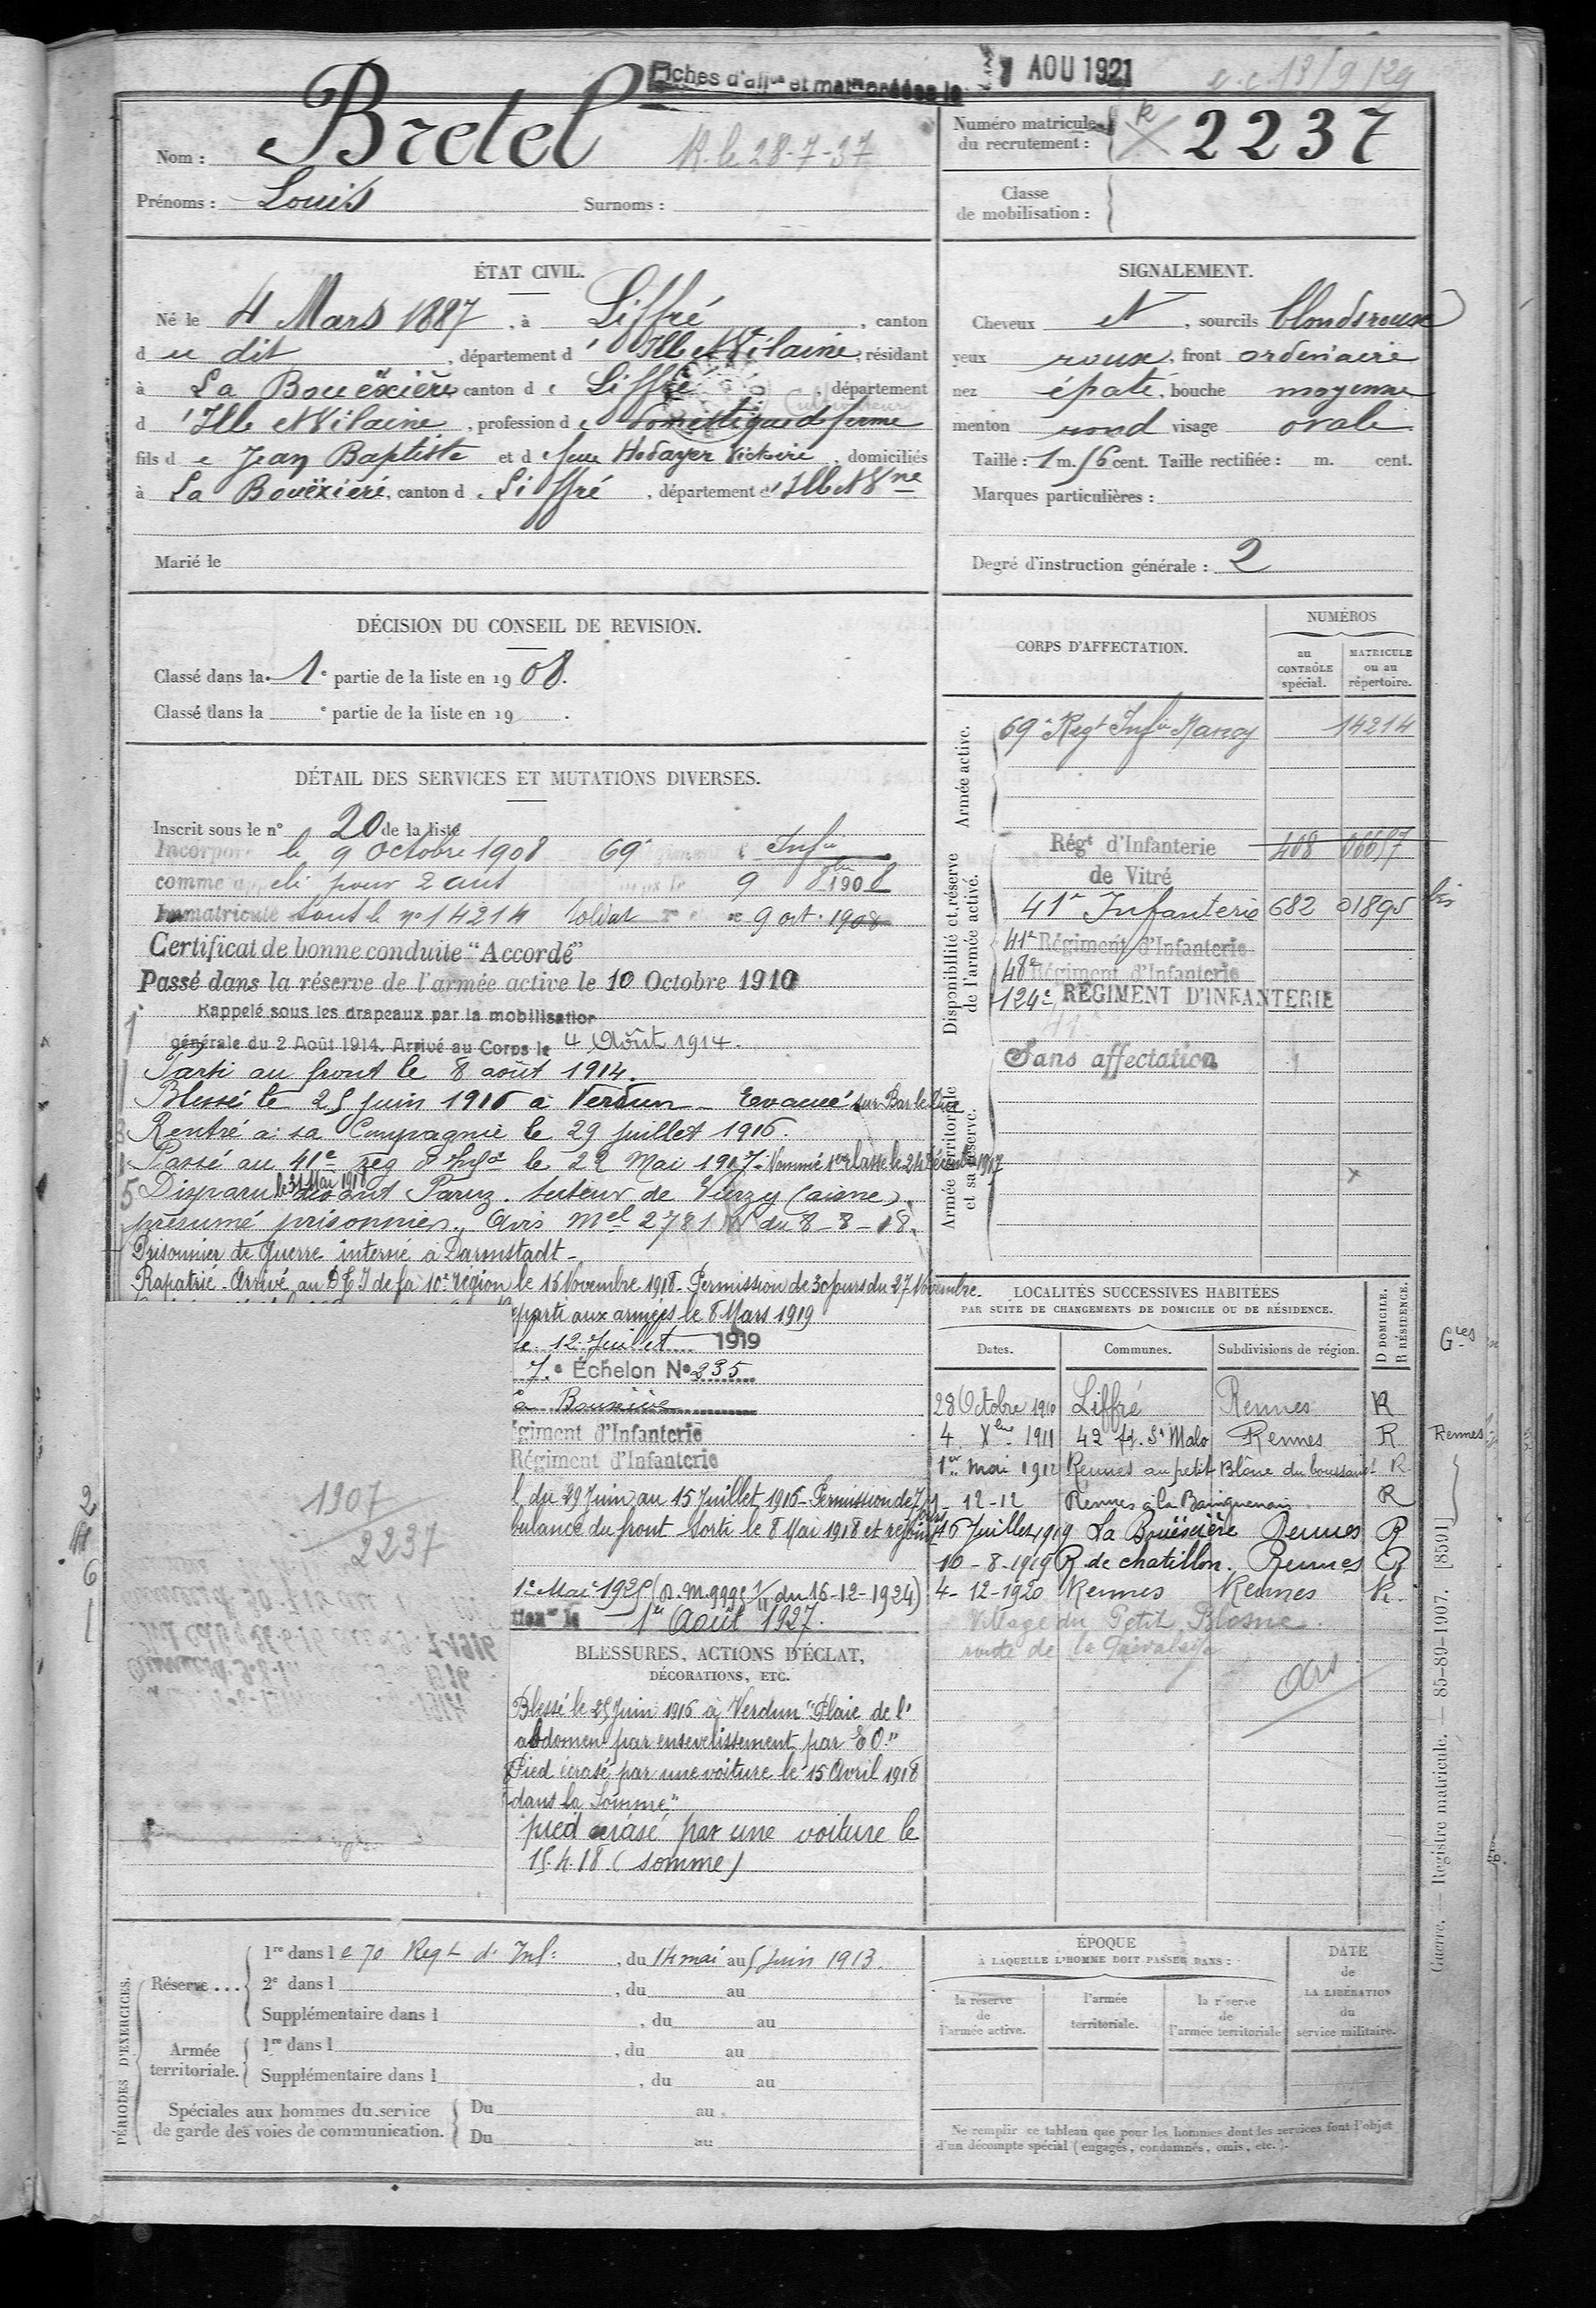 Fiches d'aff et mat créées le
7 AOU 1921
13/9/29
Nom : Bretel
R. le 28-7-37
Prénoms : Louis Surnoms :
Numéro matricule du recrutement : 2237
Classe de mobilisation :
ÉTAT CIVIL.
Né le 4 Mars 1887, à Liffré, canton
du dit, département d'Ille et Vilaine, résidant
à La Bouëxière canton de Liffré, département
Cultivateur
d'Ille et Vilaine, profession de domestique de ferme
fils de Jean Baptiste et de feue Hodayer Victoire, domiciliés
à La Bouëxière, canton de Liffré, département d'Ille et Vne
Marié le
SIGNALEMENT.
Cheveux et, sourcils blonds roux
yeux roux, front ordinaire
nez épaté, bouche moyenne
menton rond visage ovale
Taille : 1 m. 56 cent. Taille rectifiée : m. cent.
Marques particulières :
Degré d'instruction générale : 2
DÉCISION DU CONSEIL DE REVISION.
Classé dans la 1e partie de la liste en 1908.
Classé dans la e partie de la liste en 19 .
DÉTAIL DES SERVICES ET MUTATIONS DIVERSES.
Inscrit sous le n° 20 de la liste
Incorporé le 9 Octobre 1908 69e Infie
comme appelé pour 2 ans 9 8bre 1908
Immatriculé sous le no 14214 Soldat 2e cl 9 oct. 1908
Certificat de bonne conduite "Accordé"
Passé dans la réserve de l'armée active le 10 Octobre 1910
Rappelé sous les drapeaux par la mobilisation
générale du 2 Août 1914. Arrivé au Corps le 4 Août 1914.
Parti au front le 8 août 1914.
Blessé le 25 juin 1916 à Verdun - Evacué sur Bar le Duc
Rentré à sa Compagnie le 29 juillet 1916.
Passé au 41e reg d'Infie le 22 Mai 1917 - Nommé 1ere classe le 24 Décembre 1917
Disparu le 31 Mai 1918 devant Parcy. secteur de Vierzy (aisne).
présumé prisonnier. Avis Mel 2781 W du 8-8-18.
Prisonnier de Guerre interné à Darmstadt -
Rapatrié. Arrivé au D.T.I de la 10e région le 16 Novembre 1918. Permission de 30 jours du 27 Novembre.
eparti aux armées le 8 Mars 1919
le 12 Juillet 1919
7e Échelon N° 235
à Bouëxière
égiment d'Infanterie
Régiment d'Infanterie
l du 29 Juin au 15 Juillet 1916 - Permission de 7 jours
bulance du front. Sorti le 8 Mai 1918 et rejoint
1e Mai 1925 (D.M. 9995 1/11 du 16-12-1924)
tion le 1er Août 1927.
1907
2237
BLESSURES, ACTIONS D'ÉCLAT,
DÉCORATIONS, ETC.
Blessé le 25 Juin 1916 à Verdun "Plaie de l'
abdomen par ensevelissement par E O."
Pied écrasé par une voiture le 15 Avril 1918
dans la Somme"
pied écrasé par une voiture le
15.4.18 (somme)
CORPS D'AFFECTATION.
NUMÉROS
au CONTRÔLE spécial.
MATRICULE ou au répertoire.
Armée active.
69e Regt Infie Nancy 14214
Disponibilité et réserve de l'armée active.
Régt d'Infanterie 408 06657
de Vitré
41e Infanterie 682 01895 bis
41e Régiment d'Infanterie
48e Régiment d'Infanterie
124e RÉGIMENT D'INFANTERIE
Sans affectation
Armée territoriale et sa réserve.
LOCALITÉS SUCCESSIVES HABITÉES
PAR SUITE DE CHANGEMENTS DE DOMICILE OU DE RÉSIDENCE.
Dates. Communes. Subdivisions de région. D DOMICILE. R RÉSIDENCE.
28 Octobre 1910 Liffré Rennes R
4 Xbre 1911 42 fg. St Malo Rennes R
1er mai 1912 Rennes au petit Blône R
1-12-12 Rennes à la R
16 Juillet 1919 La Bouëxière Rennes R
10-8-1919 R de chatillon. Rennes R
4-12-1920 Rennes Rennes R.
Village du Petit Blosne.
route de la Prévalaye
Gres
Rennes
Guerre. — Registre matricule. — 85-89-1907. [8591]
PÉRIODES D'EXERCICES.
Réserve ... 1re dans le 70 Regt d'Inf: , du 14 mai au 5 Juin 1913.
2e dans l , du au
Supplémentaire dans l , du au
Armée territoriale. 1re dans l , du au
Supplémentaire dans l , du au
Spéciales aux hommes du service de garde des voies de communication. Du au
Du au
ÉPOQUE
À LAQUELLE L'HOMME DOIT PASSER DANS :
la réserve de l'armée active.
l'armée territoriale.
la réserve de l'armée territoriale
DATE de LA LIBÉRATION du service militaire.
Ne remplir ce tableau que pour les hommes dont les services font l'objet
d'un décompte spécial (engagés, condamnés, omis, etc.).